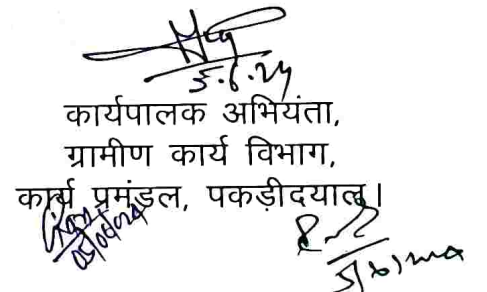 5.6.24
कार्यपालक अभियंता,
ग्रामीण कार्य विभाग,
कार्य प्रमंडल, पकड़ीदयाल।
05/06/24